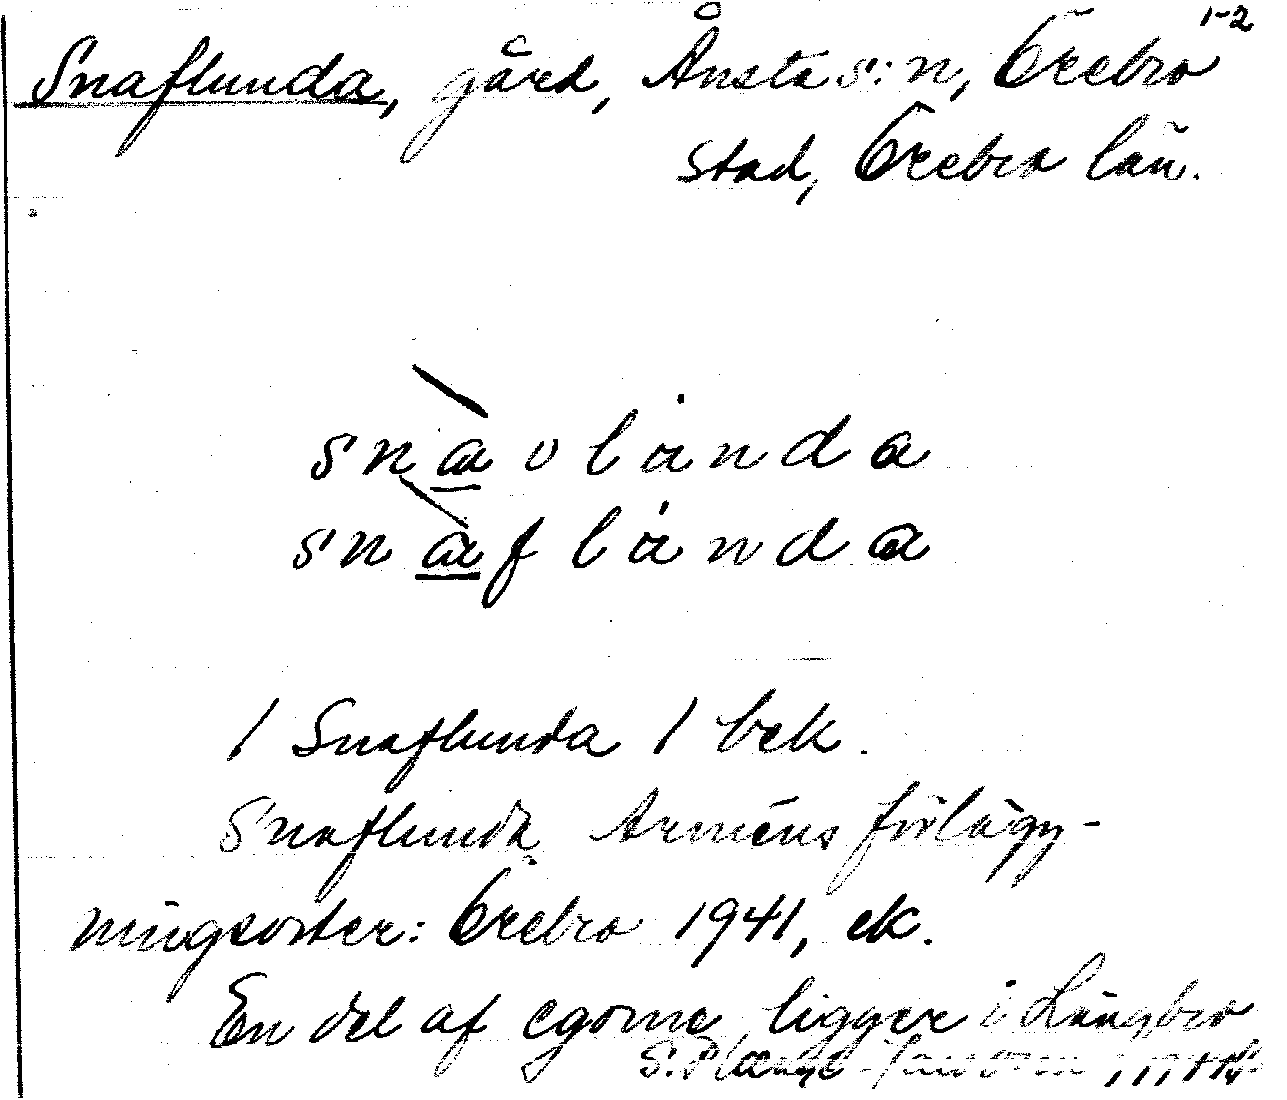 1-2
Snaflunda, gård, Ånsta s:n, Örebro
stad, Örebro län.
snavlȧnda
snaflȧnda
/ Snaflunda / bek.
Snaflunda Arméns förlägg-
ningsorter: Örebro 1941, ek.
En del af egorne ligger i Längbro
S.